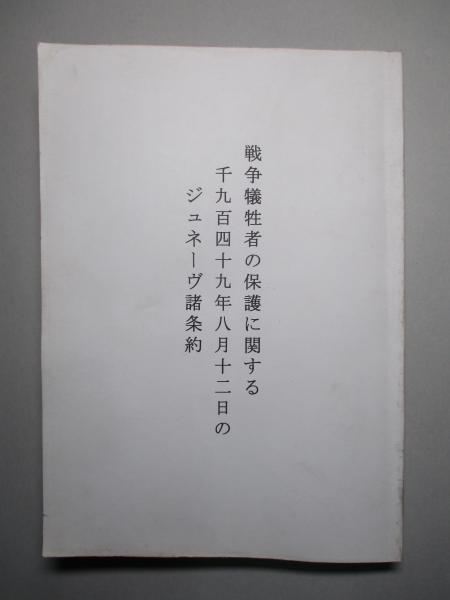 戦争犠牲者の保護に関する
千九百四十九年八月十二日の
ジュネーヴ諸条約